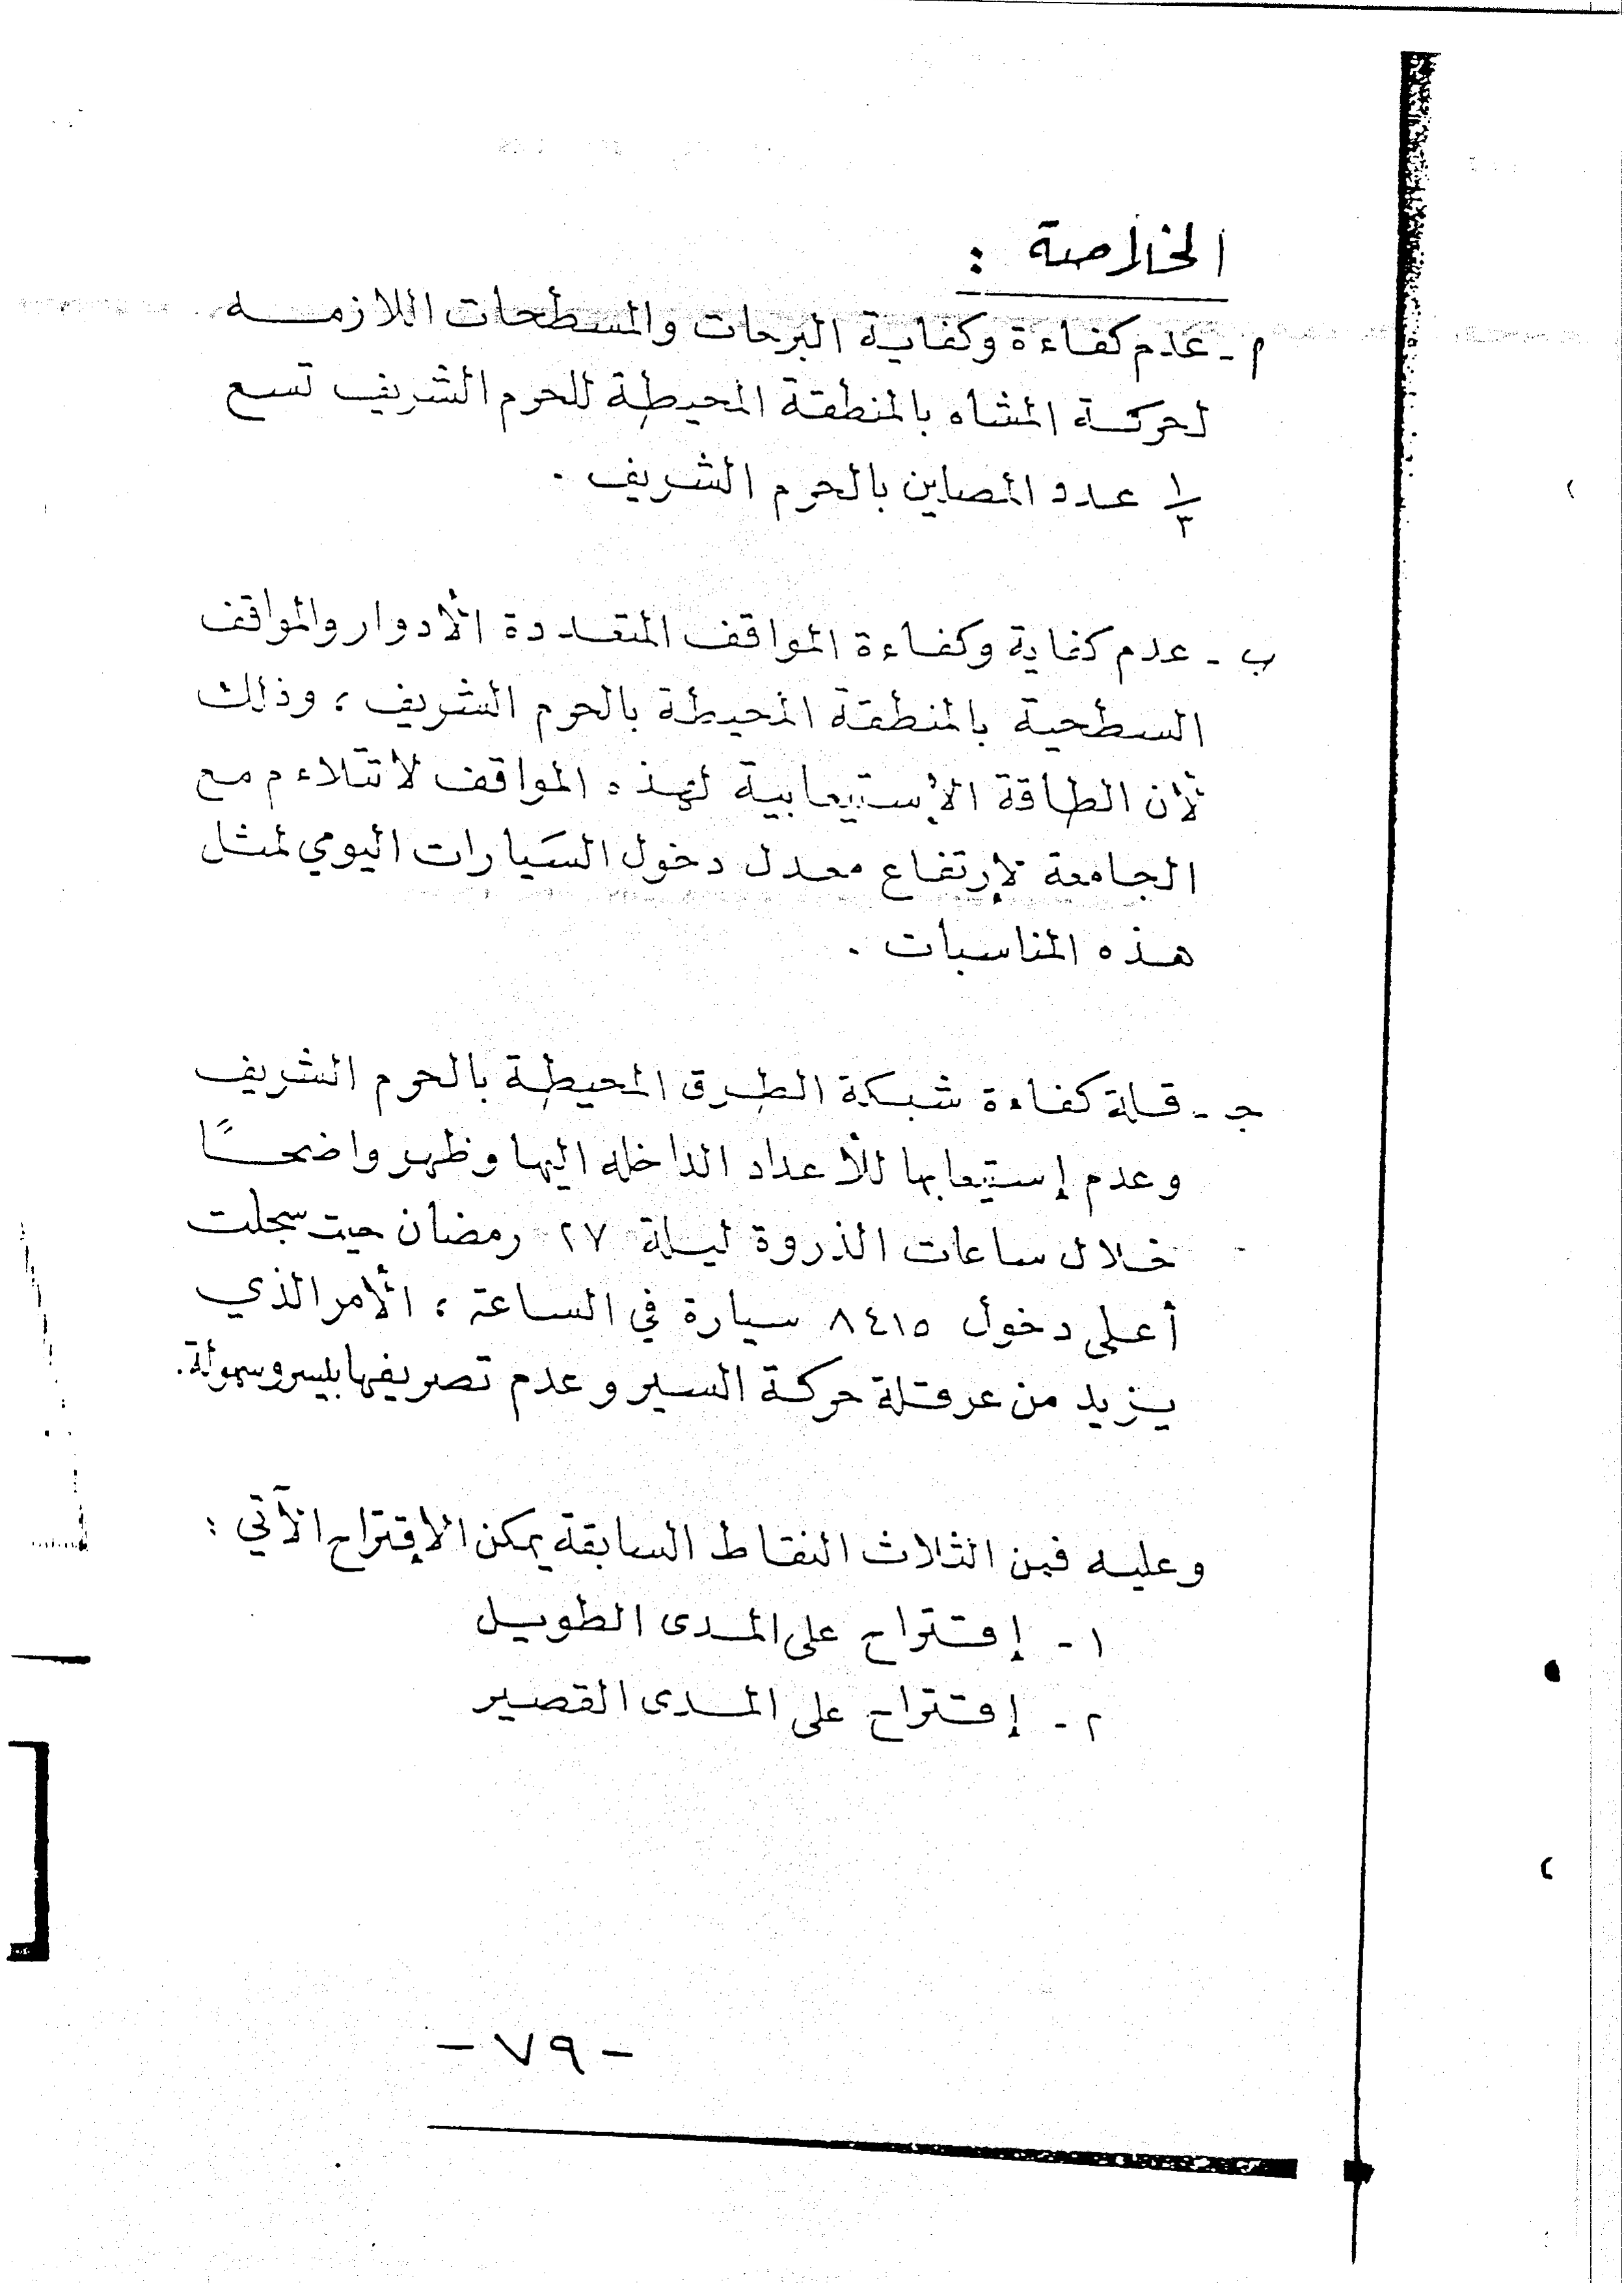 الخلاصة :
م - عدم كفاءة وكفاية البرحات والمسطحات اللازمه
لحركة المشاه بالمنطقة المحيطة للحرم الشريف تسع
١/٣ عدد المصلين بالحرم الشريف .
ب - عدم كفاية وكفاءة المواقف المتعددة الأدوار والمواقف
السطحية بالمنطقة المحيطة بالحرم الشريف ، وذلك
لأن الطاقة الإستيعابية لهذه المواقف لا تتلاءم مع
الجامعة لإرتفاع معدل دخول السيارات اليومي لمثل
هذه المناسبات .
جـ - قلة كفاءة شبكة الطرق المحيطة بالحرم الشريف
وعدم إستيعابها للأعداد الداخله اليها وظهر واضحًا
خلال ساعات الذروة ليلة ٢٧ رمضان حيث سجلت
أعلى دخول ٨٤١٥ سيارة في الساعة ، الأمر الذي
يزيد من عرقلة حركة السير وعدم تصريفها بيسر وسهولة .
وعليه فمن الثلاث النقاط السابقة يمكن الإقتراح الآتي :
١ - إقتراح على المدى الطويل
٢ - إقتراح على المدى القصير
- ٧٩ -